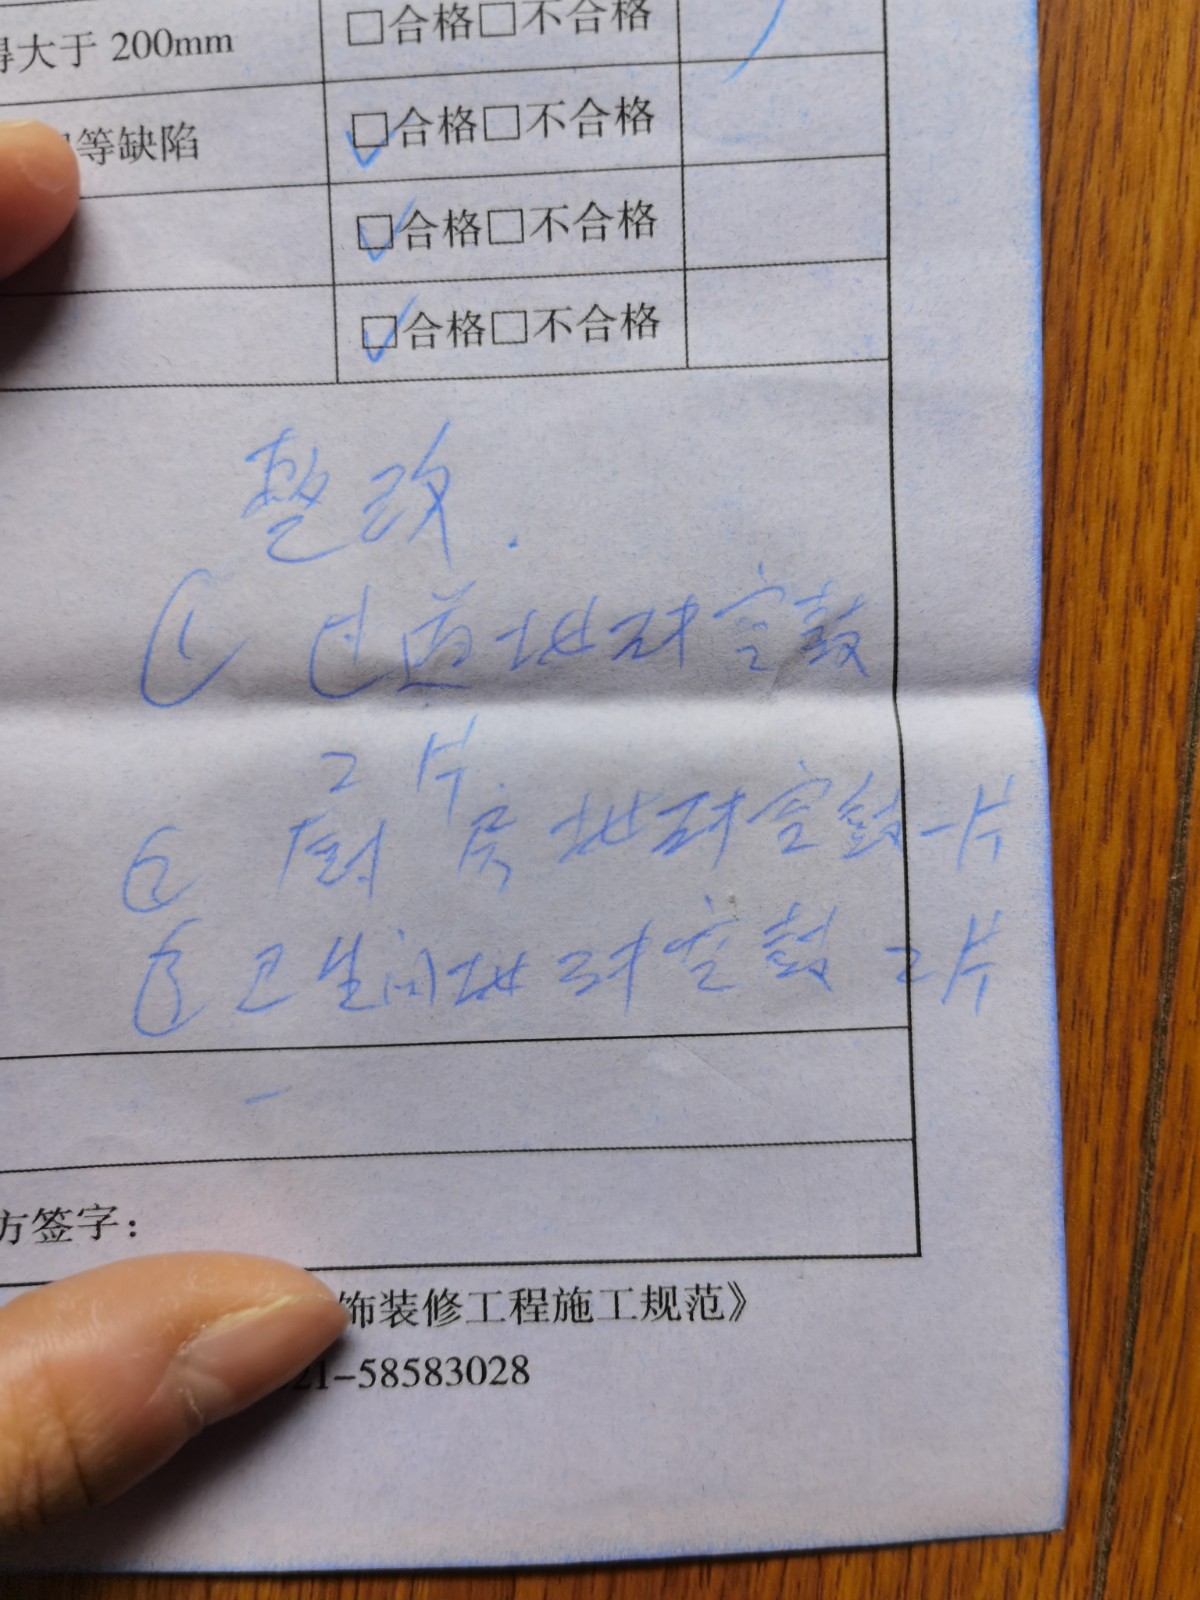 得大于 200mm □合格□不合格
等缺陷 ☑合格□不合格
☑合格□不合格
☑合格□不合格
整改.
① 过道地砖空鼓
2片
② 厨房地砖空鼓一片
③ 卫生间地砖空鼓2片
方签字:
饰装修工程施工规范》
21-58583028